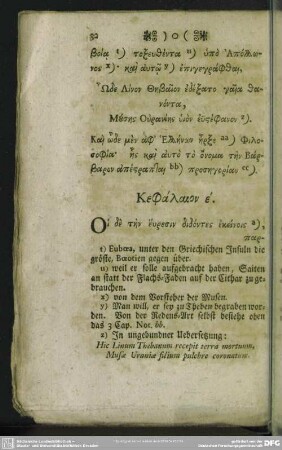 32 )o(
βοίᾳ t) τοξευθέντα u) ὑπὸ Ἀπόλλω-
νος x)· καὶ αὐτῷ y) ἐπιγεγράφθαι,
Ὧδε Λίνον Θηβαῖον ἐδέξατο γαῖα θα-
νόντα,
Μούσης Οὐρανίης υἱὸν ἐϋστεφάνου z).
Καὶ ὧδε μὲν ἀφ' Ἑλλήνων ἦρξε aa) Φιλο-
σοφία· ἧς καὶ αὐτὸ τὸ ὄνομα τὴν Βάρ-
βαρον ἀπέστραπται bb) προσηγορίαν cc).
Κεφάλαιον έ.
Οἱ δὲ τὴν εὕρεσιν διδόντες ἐκείνοις a),
παρ-
t) Euboea, unter den Griechischen Insuln die
gröste, Baeotien gegen über.
u) weil er solle aufgebracht haben, Saiten
an statt der Flachs-Faden auf der Cithar zu ge-
brauchen.
x) von dem Vorsteher der Musen.
y) Man will, er sey zu Theben begraben wor-
den. Von der Redens-Art selbst besiehe oben
das 3 Cap. Not. 66.
z) In ungebundner Uebersetzung:
Hic Linum Thebanum recepit terra mortuum,
Musæ Uraniæ filium pulchre coronatum.